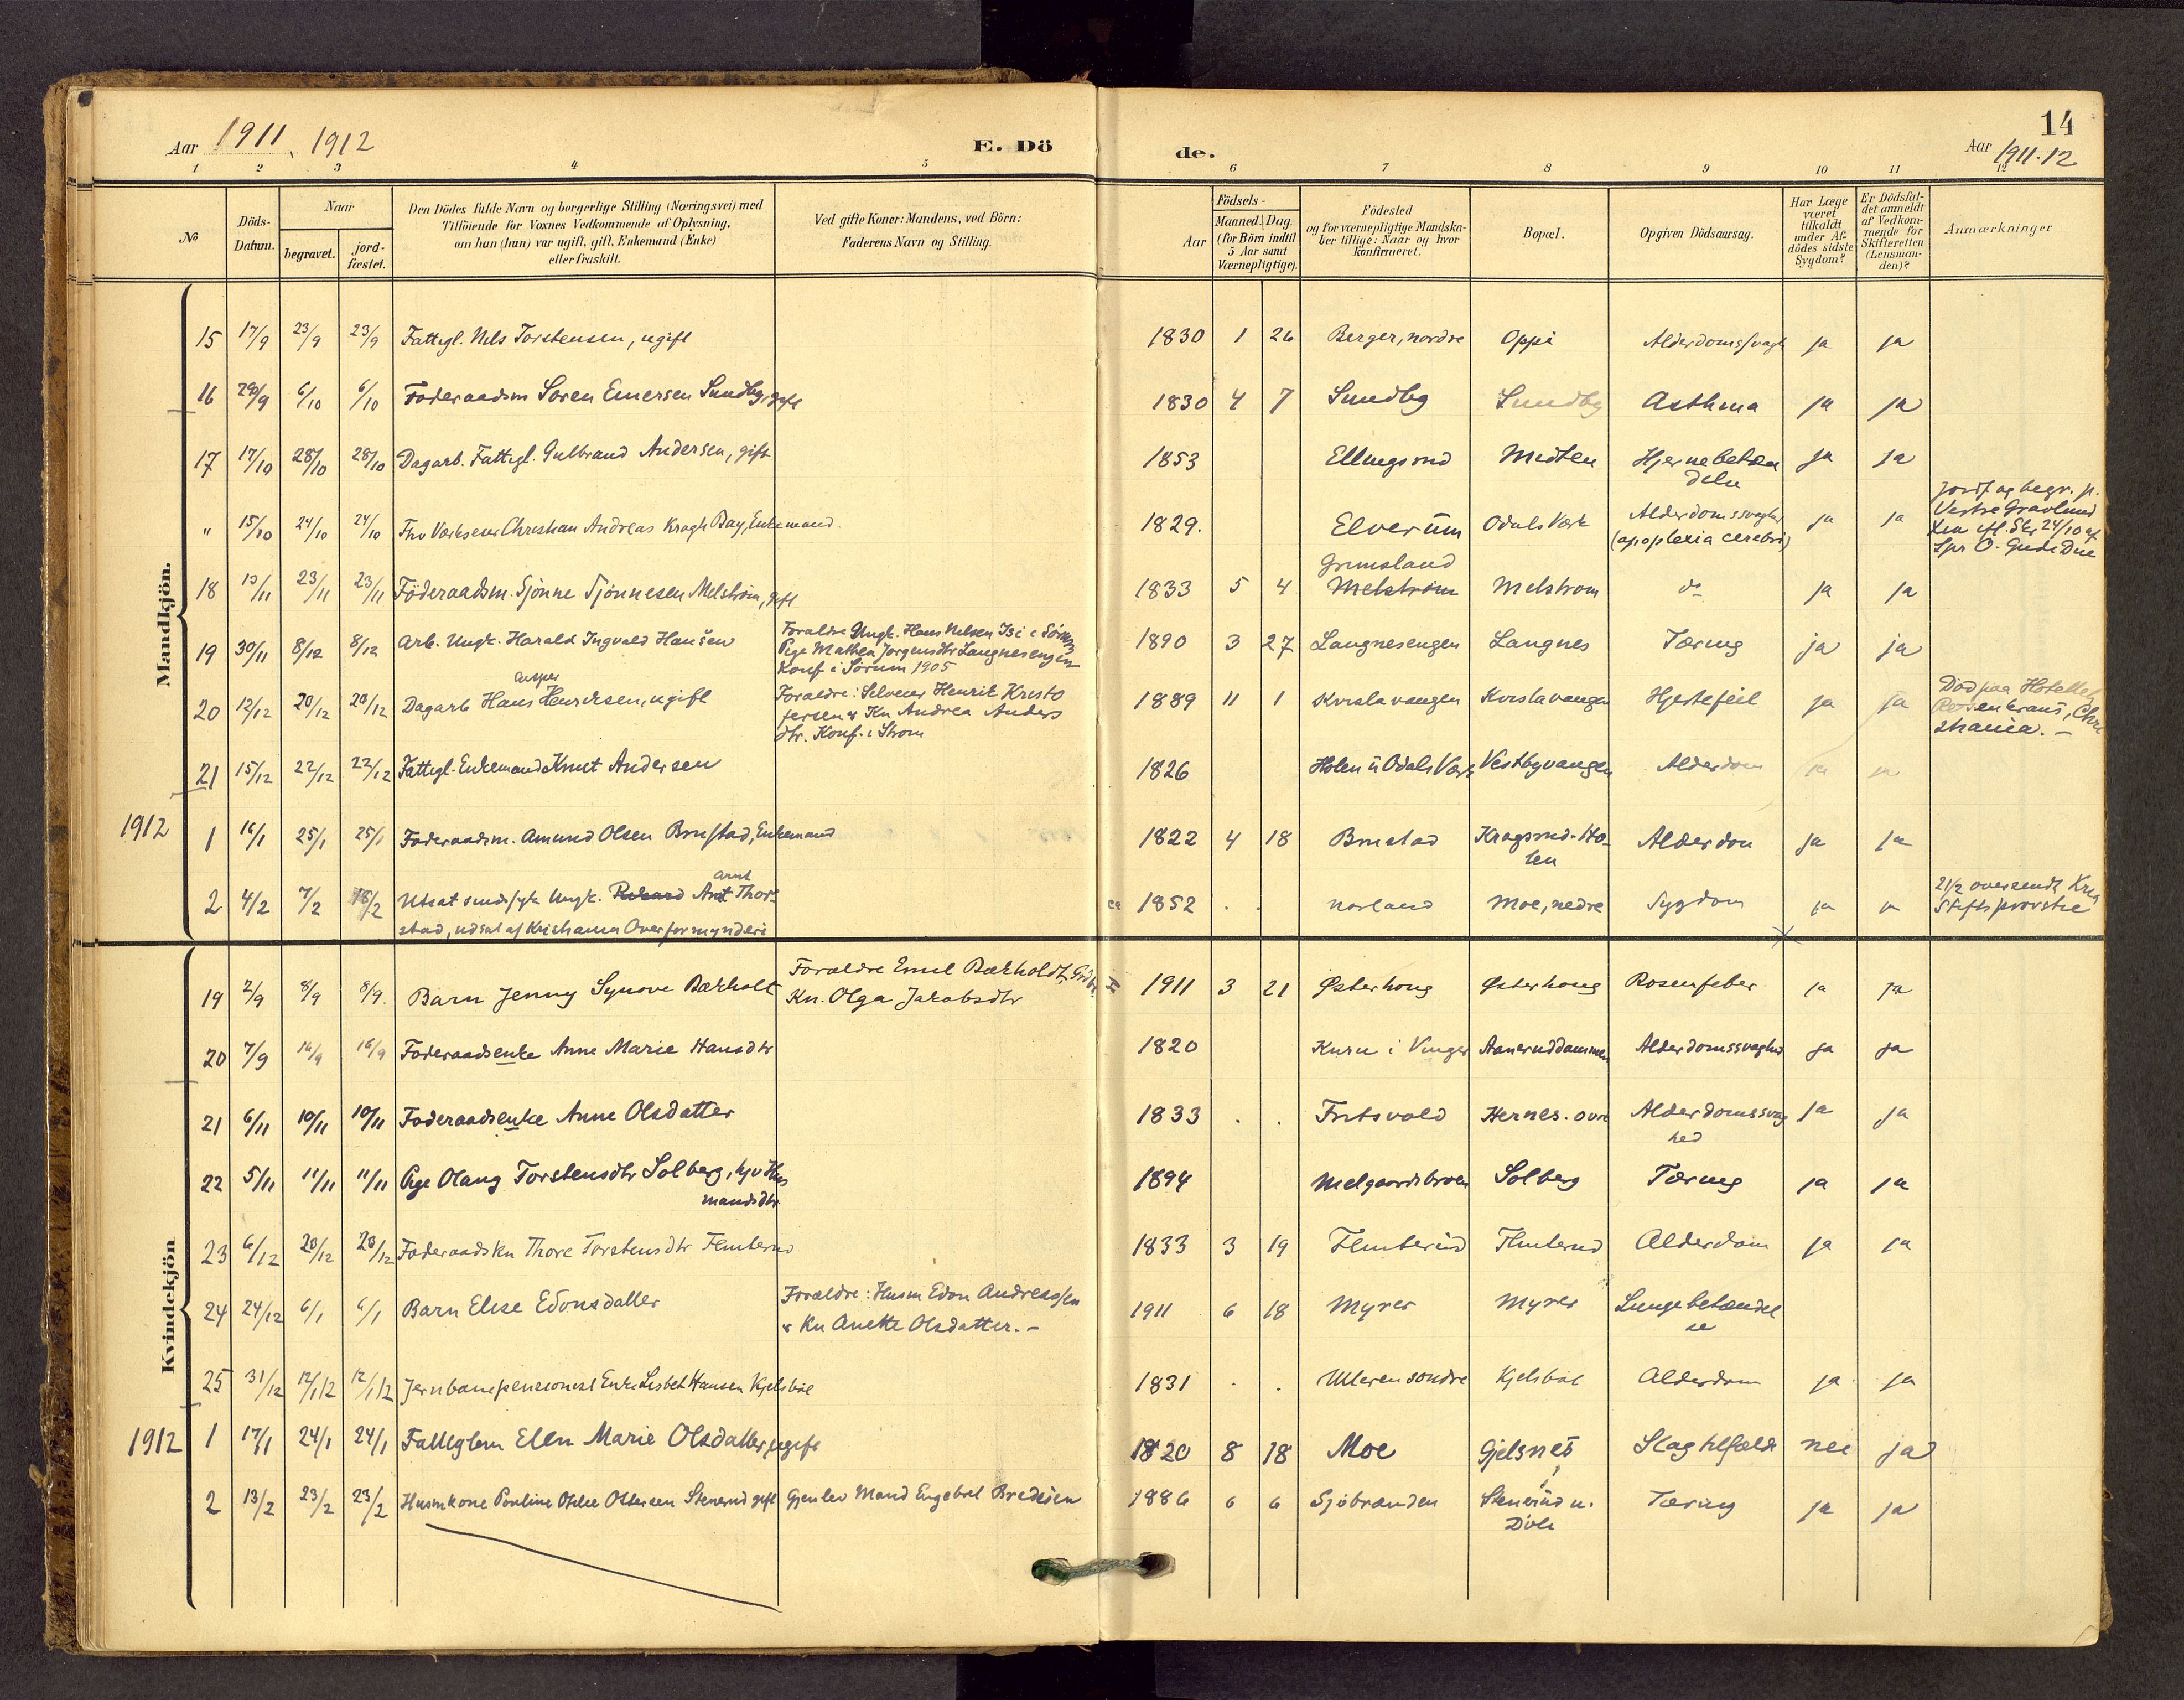 Aar 1911, 1912
E. Dö
de.
14
Aar 1911-12
1 2 3 4 5 6 7 8 9 10 11 12
No
Döds-Datum.
Naar
begravet.
jord-fæstet.
Den Dödes fulde Navn og borgerlige Stilling (Næringsvei) med
Tilföiende for Voxnes Vedkommende af Oplysning,
om han (hun) var ugift, gift, Enkemand (Enke)
eller fraskilt.
Ved gifte Koner: Mandens, ved Börn:
Faderens Navn og Stilling.
Födsels-
Aar
Maaned. Dag.
(for Börn indtil
5 Aar samt
Værnepligtige).
Födested
og for værnepligtige Mandska-
ber tillige: Naar og hvor
Konfirmeret.
Bopæl.
Opgiven Dödsaarsag.
Har Læge
været
tilkaldt
under Af-
dödes sidste
Sygdom?
Er Dödsfal-
det anmeldt
af Vedkom-
mende for
Skifteretten
(Lensman-
den)?
Anmærkninger
Mandkjön.
15 17/9 23/9 23/9 Fattigl. Nils Torstensen, ugift 1830 1 26 Berger, nordre Oppi Alderdomssvagh ja ja
16 29/9 6/10 6/10 Föderaadsm Soren Einersen Sundby, gift 1830 4 7 Sundby Sundby Asthma ja ja
17 17/10 28/10 28/10 Dagarb. Fattigl. Gulbrand Andersen, gift 1853 Ellingsrud Midten Hjernebetæn
delse ja ja
" 15/10 24/10 24/10 Fhv Værkseier Christian Andreas Kragh Bay, Enkemand 1829. Elverum Odals Værk Alderdomssvaghed
(apoplexia cerebri) ja ja
Jordf og begr. p.
Vestre Gravlund
24/10 af
Spr O. Gude Due
18 13/11 23/11 23/11 Föderaadsm. Sjönne Tjönnesen Melström, gift 1833 5 4 Grimsland
Melström Melstrom do ja ja
19 30/11 8/12 8/12 Arb. Ungk. Harald Ingvald Hansen
Foraldre Ungk. Hans Nilsen i Sörum
Pige Mathea Jorgensdtr Langnesengen
Konf. i Sörum 1905
1890 3 27 Langnesengen Langnes Tæring ja ja
20 12/12 20/12 20/12 Casper
Dagarb Hans Henriksen, ugift
Foraldre: Selveier Henrik Kristo
fersen & Kn Andrea Anders
dtr. Konf. i Strom
1889 11 1 Kvislavangen Kvislavangen Hjertefeil ja ja
Död paa Hotellet
Rosenkrans, Chri
stiania. –
21 15/12 22/12 22/12 Fattigl. Enkemand Knut Andersen 1826 Holen u Odals Værk Vestbyvangen Alderdom ja ja
1912
1 16/1 25/1 25/1 Föderaadsm. Amund Olsen Brustad, Enkemand 1822 4 18 Brustad Kragsrud-Ho-
len Alderdom ja ja
2 4/2 7/2 18/2 Utsat sindssyk Ungk. Rikard Arnt Thor-
Arnt
stad, udsat af Kristiania Overformynderi
ca 1852 . . Norland Moe, nedre Sygdom ja ja
21/2 oversendt Kria
Stiftsprovstie
Kvindekjön
19 2/9 8/9 8/9. Barn Jenny Synove Bækholt
Foraldre Emil Bækholdt,
Kn. Olga Jakobsdtr
1911 3 21 Østerhoug Østerhoug Rosenfeber ja ja
20 7/9 16/9 16/9 Föderaadsenke Anne Marie Hansdtr 1820 Kuru i Vinger Aaneruddammen Alderdomssvaghed ja ja
21 6/11 10/11 10/11 Föderaadsenke Anne Olsdatter 1833 . . Fritsvold Hernes. ovre Alderdomssvag
hed ja ja
22 5/11 11/11 11/11 Pige Olaug Torstensdtr Solberg, hjv Hus
mandsdtr 1894 Melgaardsbroen Solberg Tæring ja ja
23 6/12 20/12 20/12 Föderaadskn Thore Torstensdtr Flinterud 1833 3 19 Flinterud Flinterud Alderdom ja ja
24 24/12 6/1 6/1 Barn Elise Edonsdatter
Forældre: Husm Edon Andreassen
& Kn Anette Olsdatter. –
1911 6 18 Myrer Myrer Lungebetændel
se
25 31/12 12/1 12 12/1 12 Jernbanepensionist Enke Lisbet Hansen Kjelsböl 1831 . . Ulleren sondre Kjelsböl Alderdom ja ja
1912
1 17/1 24/1 24/1 Fattiglem Elen Marie Olsdatter, ugift 1820 8 18 Moe Gjelsnes Slagtilfælde nei ja
2 13/2 23/2 23/2 Husmkone Pouline Otilie Ottersen Stenerud gift Gjenlev Mand Engebret Bredesen 1886 6 6 Sjöbrænden Stenerud u.
Döli Tæring ja ja